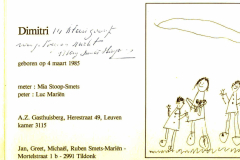 Dimitri
geboren op 4 maart 1985
meter : Mia Stoop-Smets
peter : Luc Mariën
A.Z. Gasthuisberg, Herestraat 49, Leuven
kamer 3115
Jan, Greet, Michaël, Ruben Smets-Mariën -
Mortelstraat 1 b - 2991 Tildonk